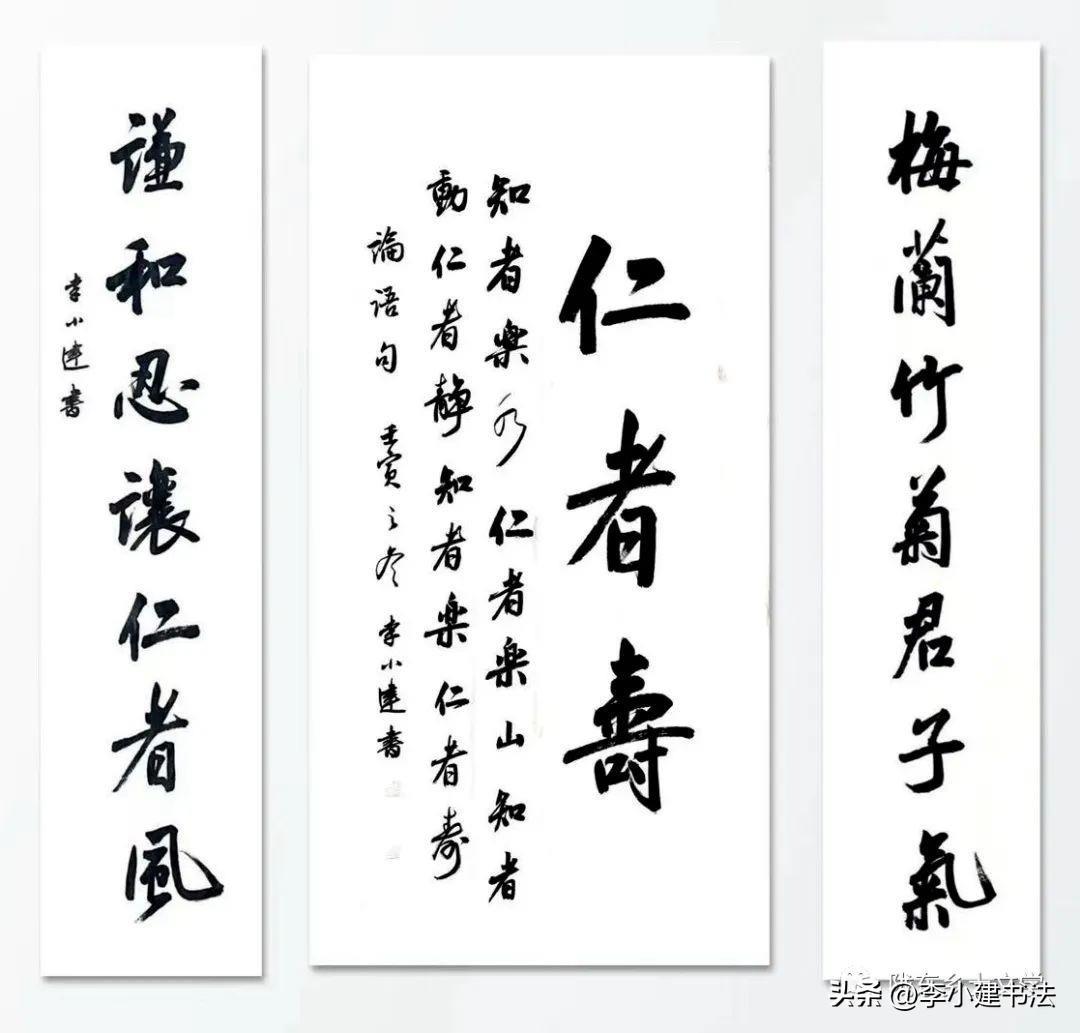 梅蘭竹菊君子氣
仁者壽
知者樂水仁者樂山知者
動仁者靜知者樂仁者寿
論語句 壬寅之冬 李小建書
謙和忍讓仁者風
李小建書
陇东乡土文学
头条 @李小建书法